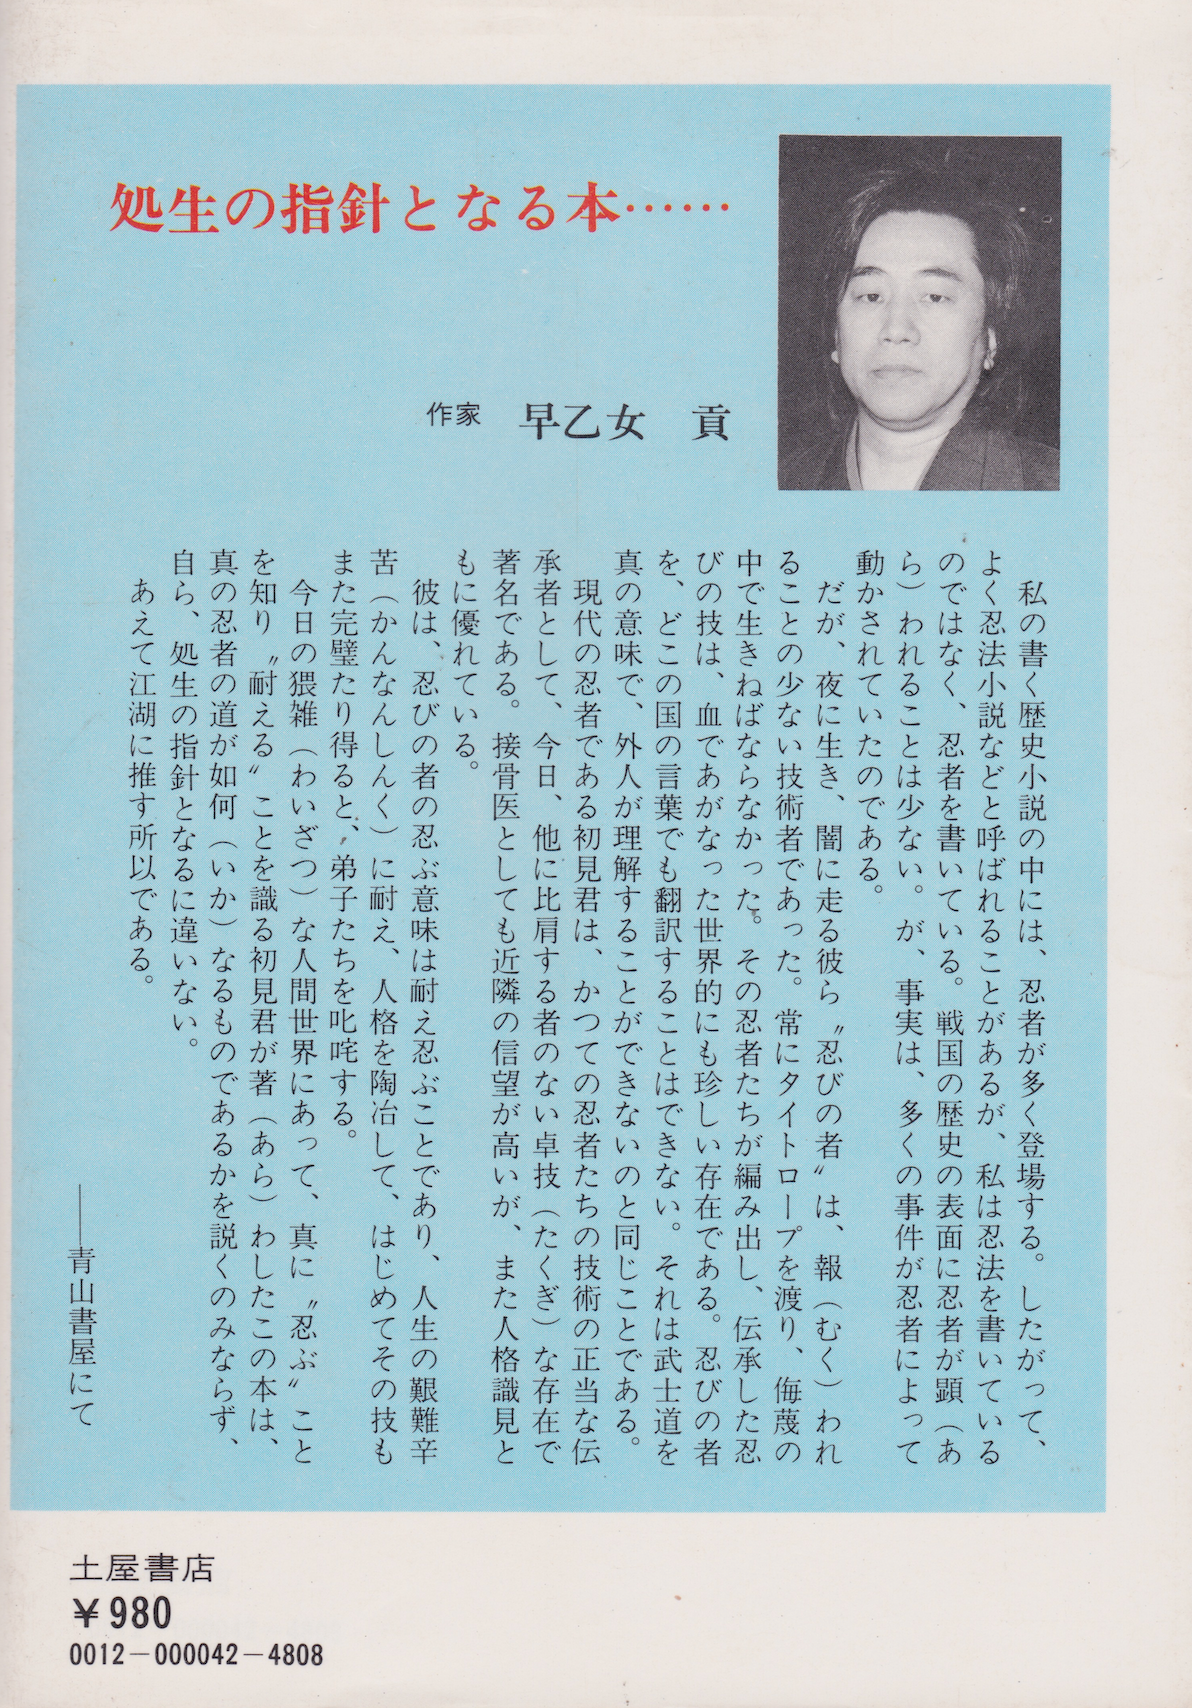 処生の指針となる本……
作家 早乙女 貢
私の書く歴史小説の中には、忍者が多く登場する。したがって、
よく忍法小説などと呼ばれることがあるが、私は忍法を書いている
のではなく、忍者を書いている。戦国の歴史の表面に忍者が顕（あ
ら）われることは少ない。が、事実は、多くの事件が忍者によって
動かされていたのである。
だが、夜に生き、闇に走る彼ら〝忍びの者〟は、報（むく）われ
ることの少ない技術者であった。常にタイトロープを渡り、侮蔑の
中で生きねばならなかった。その忍者たちが編み出し、伝承した忍
びの技は、血であがなった世界的にも珍しい存在である。忍びの者
を、どこの国の言葉でも翻訳することはできない。それは武士道を
真の意味で、外人が理解することができないのと同じことである。
現代の忍者である初見君は、かつての忍者たちの技術の正当な伝
承者として、今日、他に比肩する者のない卓技（たくぎ）な存在で
著名である。接骨医としても近隣の信望が高いが、また人格識見と
もに優れている。
彼は、忍びの者の忍ぶ意味は耐え忍ぶことであり、人生の艱難辛
苦（かんなんしんく）に耐え、人格を陶冶して、はじめてその技も
また完璧たり得ると、弟子たちを叱咤する。
今日の猥雑（わいざつ）な人間世界にあって、真に〝忍ぶ〟こと
を知り〝耐える〟ことを識る初見君が著（あら）わしたこの本は、
真の忍者の道が如何（いか）なるものであるかを説くのみならず、
自ら、処生の指針となるに違いない。
あえて江湖に推す所以である。
――青山書屋にて
土屋書店
¥980
0012－000042－4808